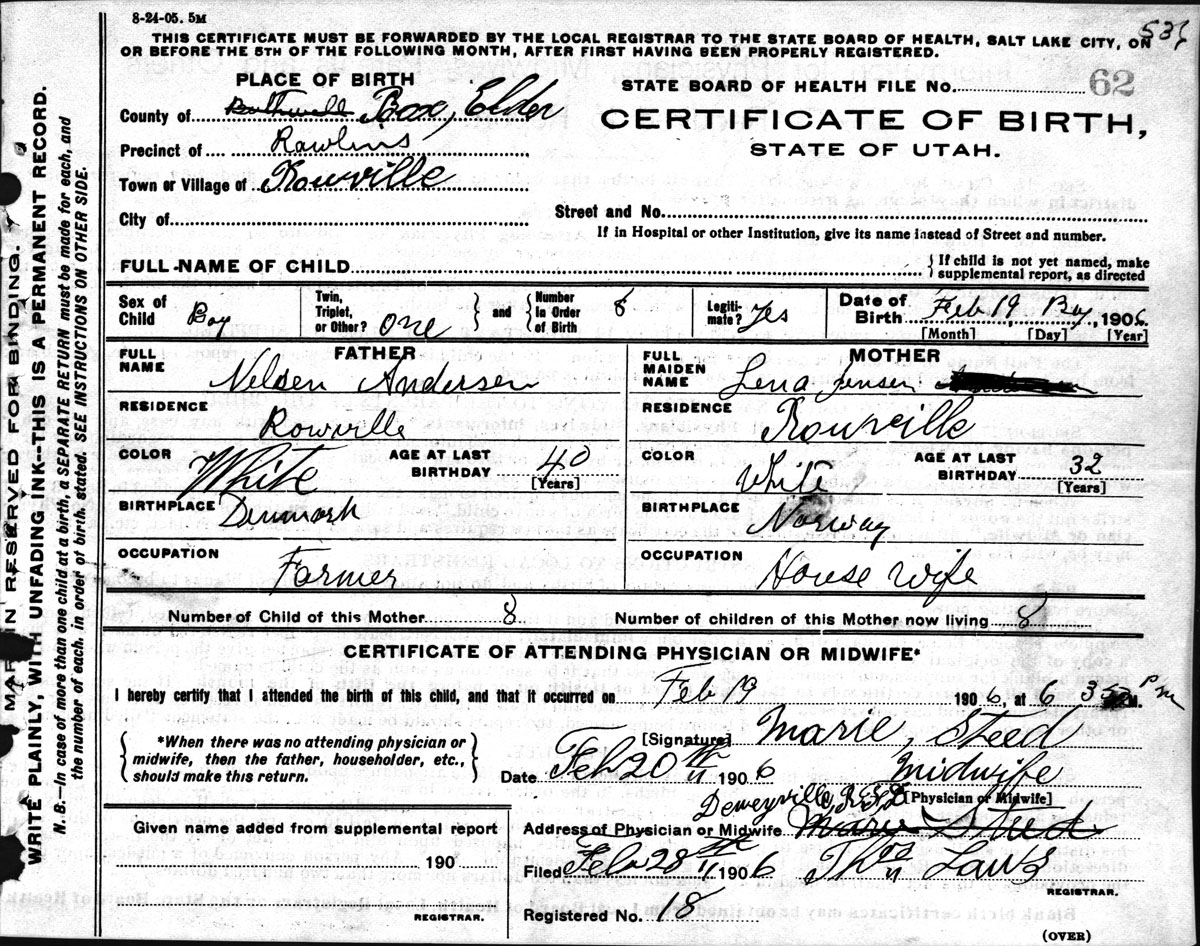 8-24-05. 5M
THIS CERTIFICATE MUST BE FORWARDED BY THE LOCAL REGISTRAR TO THE STATE BOARD OF HEALTH, SALT LAKE CITY, ON
OR BEFORE THE 5TH OF THE FOLLOWING MONTH, AFTER FIRST HAVING BEEN PROPERLY REGISTERED.
PLACE OF BIRTH
STATE BOARD OF HEALTH FILE No. 62
County of Bothwell Box, Elder
CERTIFICATE OF BIRTH,
STATE OF UTAH.
Precinct of Rawlins
Town or Village of Rowville
City of
Street and No.
If in Hospital or other Institution, give its name instead of Street and number.
FULL NAME OF CHILD
If child is not yet named, make
supplemental report, as directed
Sex of Child Boy
Twin, Triplet, or Other? one
and
Number In Order of Birth 8
Legiti-mate? Yes
Date of Birth Feb 19, Boy, 1906.
[Month] [Day] [Year]
FATHER
FULL NAME Nelsen Andersen
MOTHER
FULL MAIDEN NAME Lena Jensen
RESIDENCE Rowville
RESIDENCE Rowville
COLOR White
AGE AT LAST BIRTHDAY 40
[Years]
COLOR White
AGE AT LAST BIRTHDAY 32
[Years]
BIRTHPLACE Denmark
BIRTHPLACE Norway
OCCUPATION Farmer
OCCUPATION House wife
Number of Child of this Mother 8
Number of children of this Mother now living 8
CERTIFICATE OF ATTENDING PHYSICIAN OR MIDWIFE*
I hereby certify that I attended the birth of this child, and that it occurred on Feb 19 1906, at 6 30 P M.
*When there was no attending physician or
midwife, then the father, householder, etc.,
should make this return.
[Signature] Marie Steed
Date Feb 20th 1906 Midwife
[Physician or Midwife]
Deweyville
Address of Physician or Midwife Marie Steed
Given name added from supplemental report
190
REGISTRAR.
Filed Feb 28th 1906 Thos Laws
REGISTRAR.
Registered No. 18
(OVER)
MARGIN RESERVED FOR BINDING.
WRITE PLAINLY, WITH UNFADING INK--THIS IS A PERMANENT RECORD.
N. B.--In case of more than one child at a birth, a SEPARATE RETURN must be made for each, and
the number of each, in order of birth, stated. SEE INSTRUCTIONS ON OTHER SIDE.